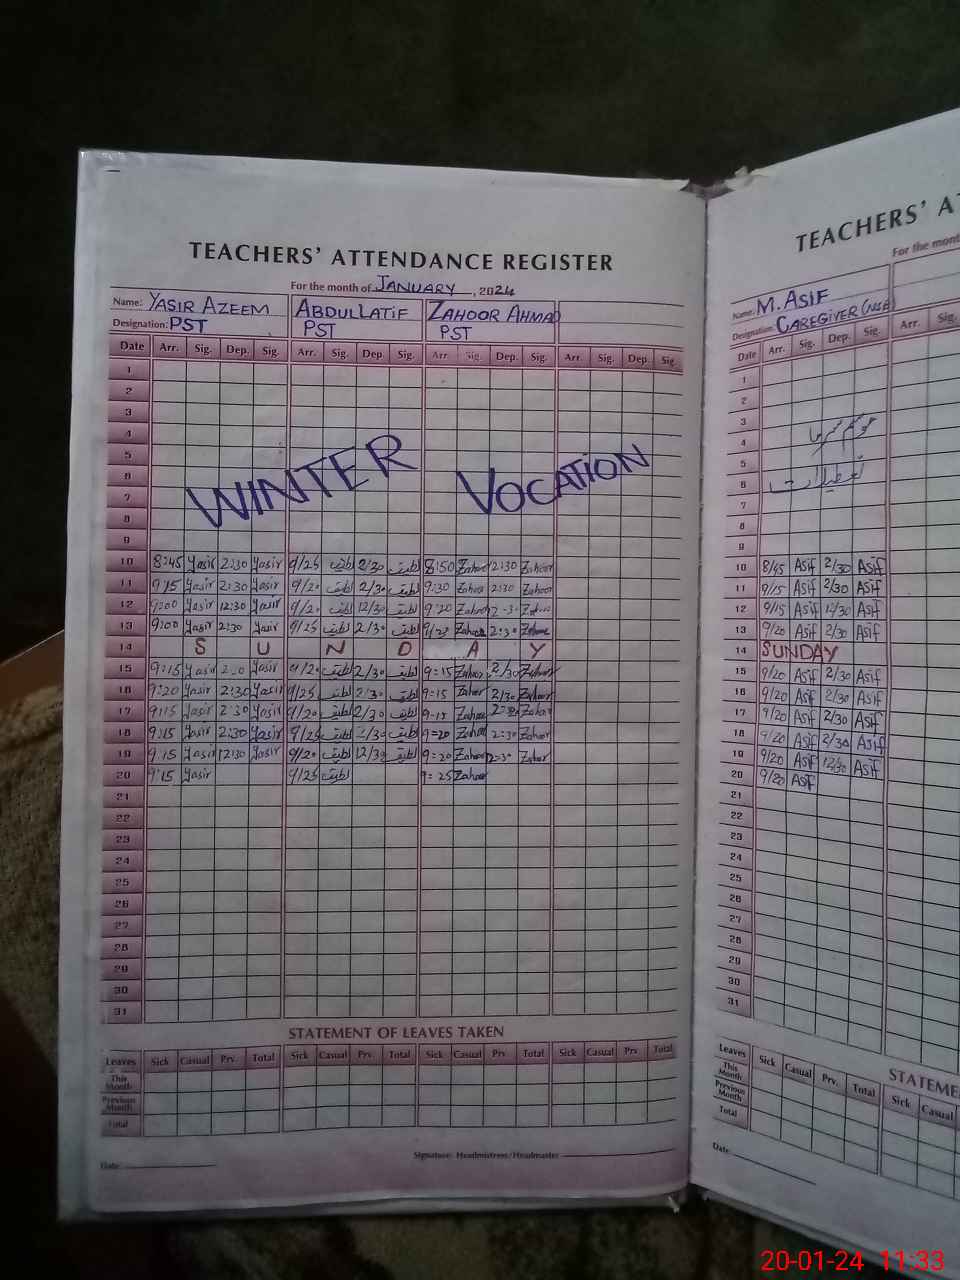 TEACHERS' ATTENDANCE REGISTER
For the month of JANUARY, 2024
Name: YASIR AZEEM ABDULLATIF ZAHOOR AHMAD
Designation: PST PST PST
Date Arr. Sig. Dep. Sig. Arr. Sig. Dep. Sig. Arr. Sig. Dep. Sig. Arr. Sig. Dep. Sig.
1
2
3
4
5
6
7
8
9
WINTER VOCATION
10 8:45 Yasir 2:30 Yasir 9/25 لطیف 2/30 لطیف 8:50 Zahoor 2:30 Zahoor
11 9:15 Yasir 2:30 Yasir 9/20 لطیف 2/30 لطیف 9:30 Zahoor 2:30 Zahoor
12 9:00 Yasir 12:30 Yasir 9/20 لطیف 12/30 لطیف 9:20 Zahoor Zahoor
13 9:00 Yasir 2:30 Yasir 9/25 لطیف 2/30 لطیف 9/25 Zahoor 2:30 Zahoor
14 S U N D A Y
15 9:15 Yasir Yasir 9/20 لطیف 2/30 لطیف 9=15 Zahoor 2/30 Zahoor
16 9:20 Yasir 2:30 Yasir 9/25 لطیف 2/30 لطیف 9=15 Zahoor 2/30 Zahoor
17 9:15 Yasir 2:30 Yasir 9/20 لطیف 2/30 لطیف 9-15 Zahoor Zahoor
18 9:15 Yasir 2:30 Yasir 9/25 لطیف 2/30 لطیف 9=20 Zahoor 2=30 Zahoor
19 9:15 Yasir 12:30 Yasir 9/20 لطیف 12/30 لطیف 9=20 Zahoor Zahoor
20 9:15 Yasir 9/25 لطیف 9=25 Zahoor
21
22
23
24
25
26
27
28
29
30
31
STATEMENT OF LEAVES TAKEN
Leaves Sick Casual Prv. Total Sick Casual Prv. Total Sick Casual Prv. Total Sick Casual Prv Total
This Month
Previous Month
Total
Date: Signature: Headmistress/Headmaster
TEACHERS'
For the
Name: M. ASIF
Designation: CAREGIVER
Date Arr. Sig. Dep. Sig. Arr. Sig.
1
2
3
4
5
6
7
8
9
موسم سرما
تعطیلات
10 8/45 Asif 2/30 Asif
11 9/15 Asif 2/30 Asif
12 9/15 Asif 12/30 Asif
13 9/20 Asif 2/30 Asif
14 SUNDAY
15 9/20 Asif 2/30 Asif
16 9/20 Asif 2/30 Asif
17 9/20 Asif 2/30 Asif
18 9/20 Asif 2/30 Asif
19 9/20 Asif 12/30 Asif
20 9/20 Asif
21
22
23
24
25
26
27
28
29
30
31
Leaves Sick Casual Prv. Total Sick Casual
This Month
Previous Month
Total
Date
20-01-24 11:33